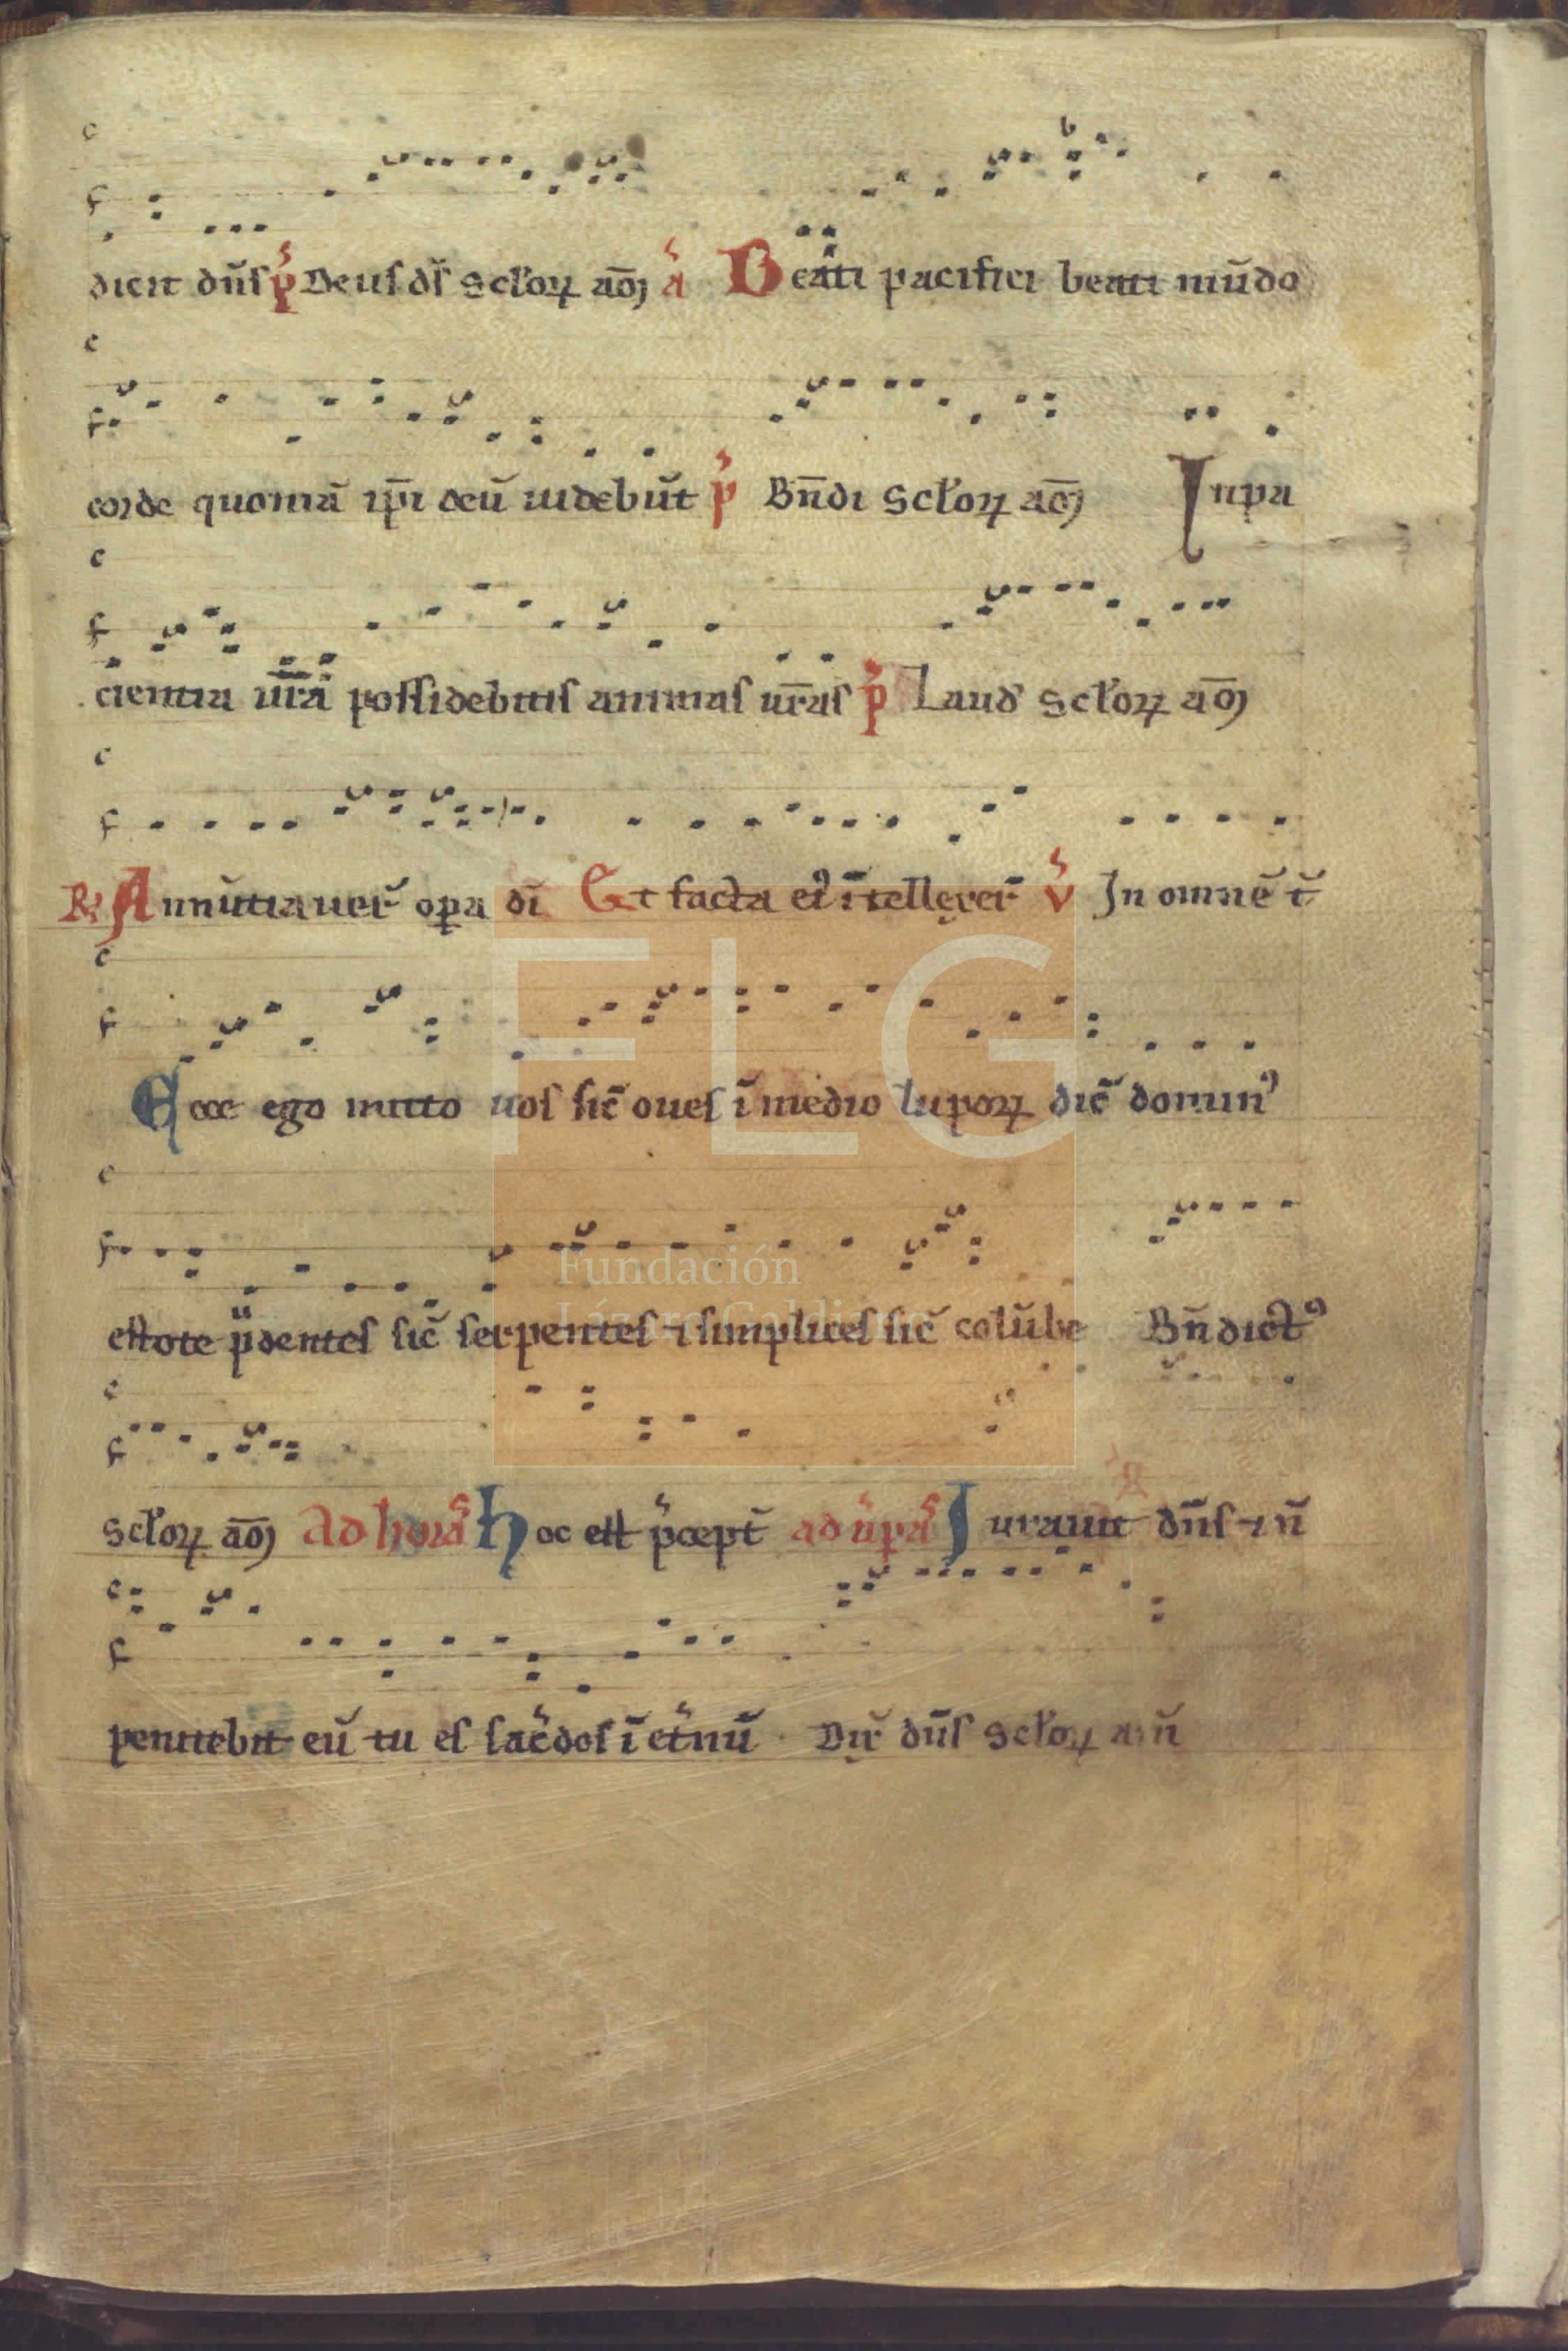 dicit dn̄s p̓ Deus ds̄ scl̄oꝝ am̄ a̓ Beati pacifici beati mūdo
corde quoniā ip̄i deū uidebūt p̓ Bn̄di scl̄oꝝ am̄ Inpa
cientia ur̄a possidebitis animas ur̄as p̓ Laud̓ scl̄oꝝ am̄
R̓ Annūtiauer̄ oꝑa dī Et facta eiꝰ ītellexer̄ v̓ In omnē t̄
Ecce ego mitto uos sic̄ oues ī medio lupoꝝ dic̄ dominꝰ
estote pͧdentes sic̄ serpentes ⁊ simplices sic̄ colūbe Bn̄dictꝰ
scl̄oꝝ am̄ Ad horas Hoc est p̓cept̄ ad uꝑas Iurauit dn̄s ⁊ n̄
penitebit eū tu es sac̓dos ī et̓nū Dix̄ dn̄s scl̄oꝝ am̄
FLG
Fundación
Lázaro Galdiano